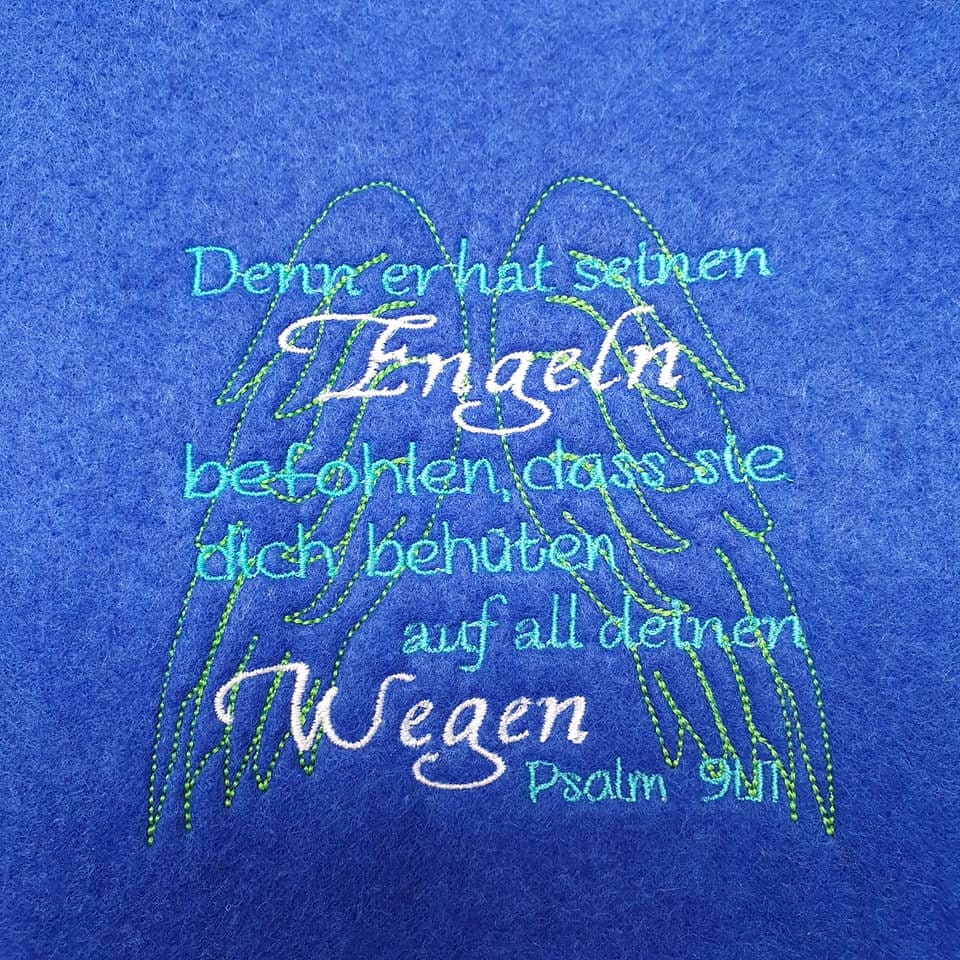 Denn er hat seinen
Engeln
befohlen, dass sie
dich behüten
auf all deinen
Wegen
Psalm